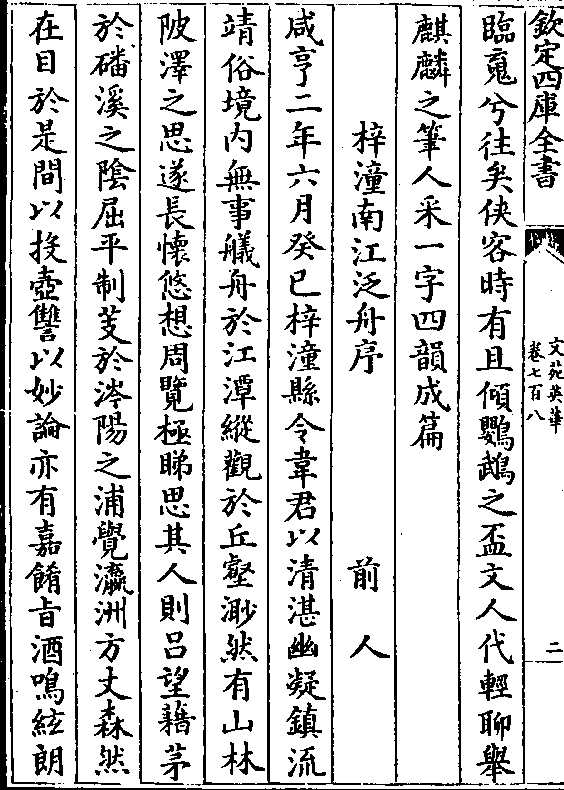 欽定四庫全書
文苑英華
卷七百八
二
臨𮥠兮往矣俠客時有且傾鸚鵡之盃文人代輕聊舉
麒麟之筆人采一字四韻成篇
梓潼南江泛舟序 前人
咸亨二年六月癸巳梓潼縣令韋君以清湛幽凝鎮流
靖俗境内無事艤舟於江潭縱觀於丘壑渺然有山林
陂澤之思遂長懷悠想周覽極睇思其人則吕望藉茅
於磻溪之隂屈平制芰於涔陽之浦覺瀛洲方丈森然
在目於是間以投壺讐以妙論亦有嘉餚㫖酒鳴絃朗